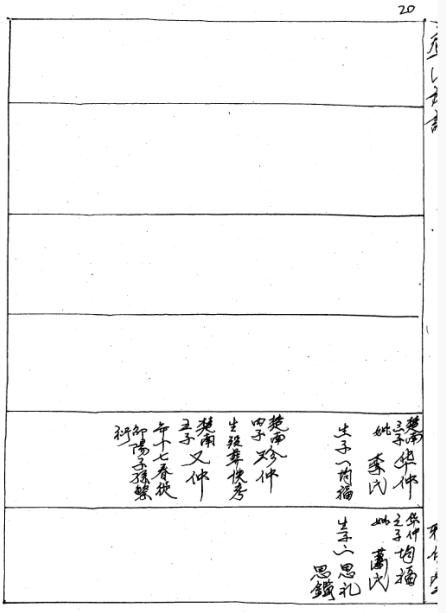 20
楚南
三子 华仲
妣 李氏
生子一 均福
楚南
四子 珍仲
生殁葬俟考
楚南
五子 又仲
年十七春徙
邵阳子孫繁
衍
华仲
之子 均福
妣 萧氏
生子二 思礼
思鎮